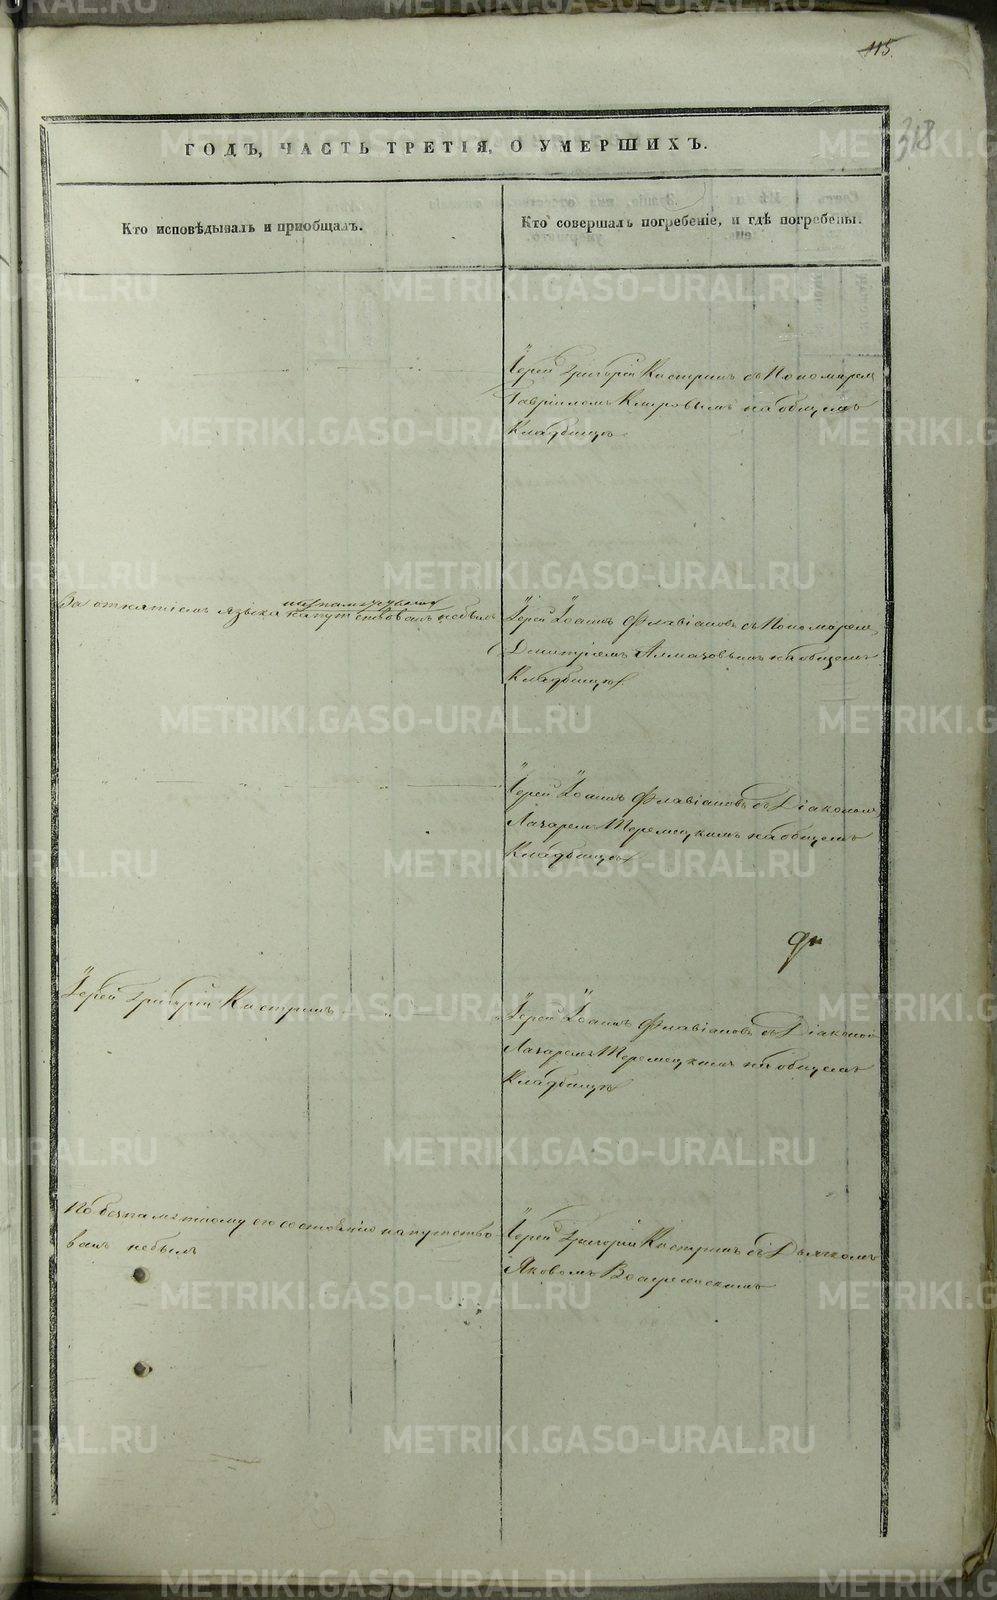 115.
318
ГОДЪ, ЧАСТЬ ТРЕТІЯ, О УМЕРШИХЪ.
Кто исповѣдывалъ и пріобщалъ.
Кто совершалъ погребеніе, и гдѣ погребены.
Іерей Григорій Кастринъ съ Пономаремъ
Гавріиломъ на общемъ
Кладбищѣ
За отнятіемъ языка напутствованъ небылъ
Іерей Іоаннъ Флавіановъ съ Пономаремъ
Димитріемъ Алмазовымъ на общемъ
Кладбищѣ.
Іерей Іоаннъ Флавіановъ съ Діакономъ
Лазаремъ Теремецкимъ на общемъ
Кладбищѣ
Іерей Григорій Кастринъ
Іерей Іоаннъ Флавіановъ съ Діакономъ
Лазаремъ Теремецкимъ на общемъ
Кладбищѣ
По безпамятному его состоянію напутство
ванъ небылъ
Іерей Григорій Кастринъ съ Дьячкомъ
Яковомъ
METRIKI.GASO-URAL.RU